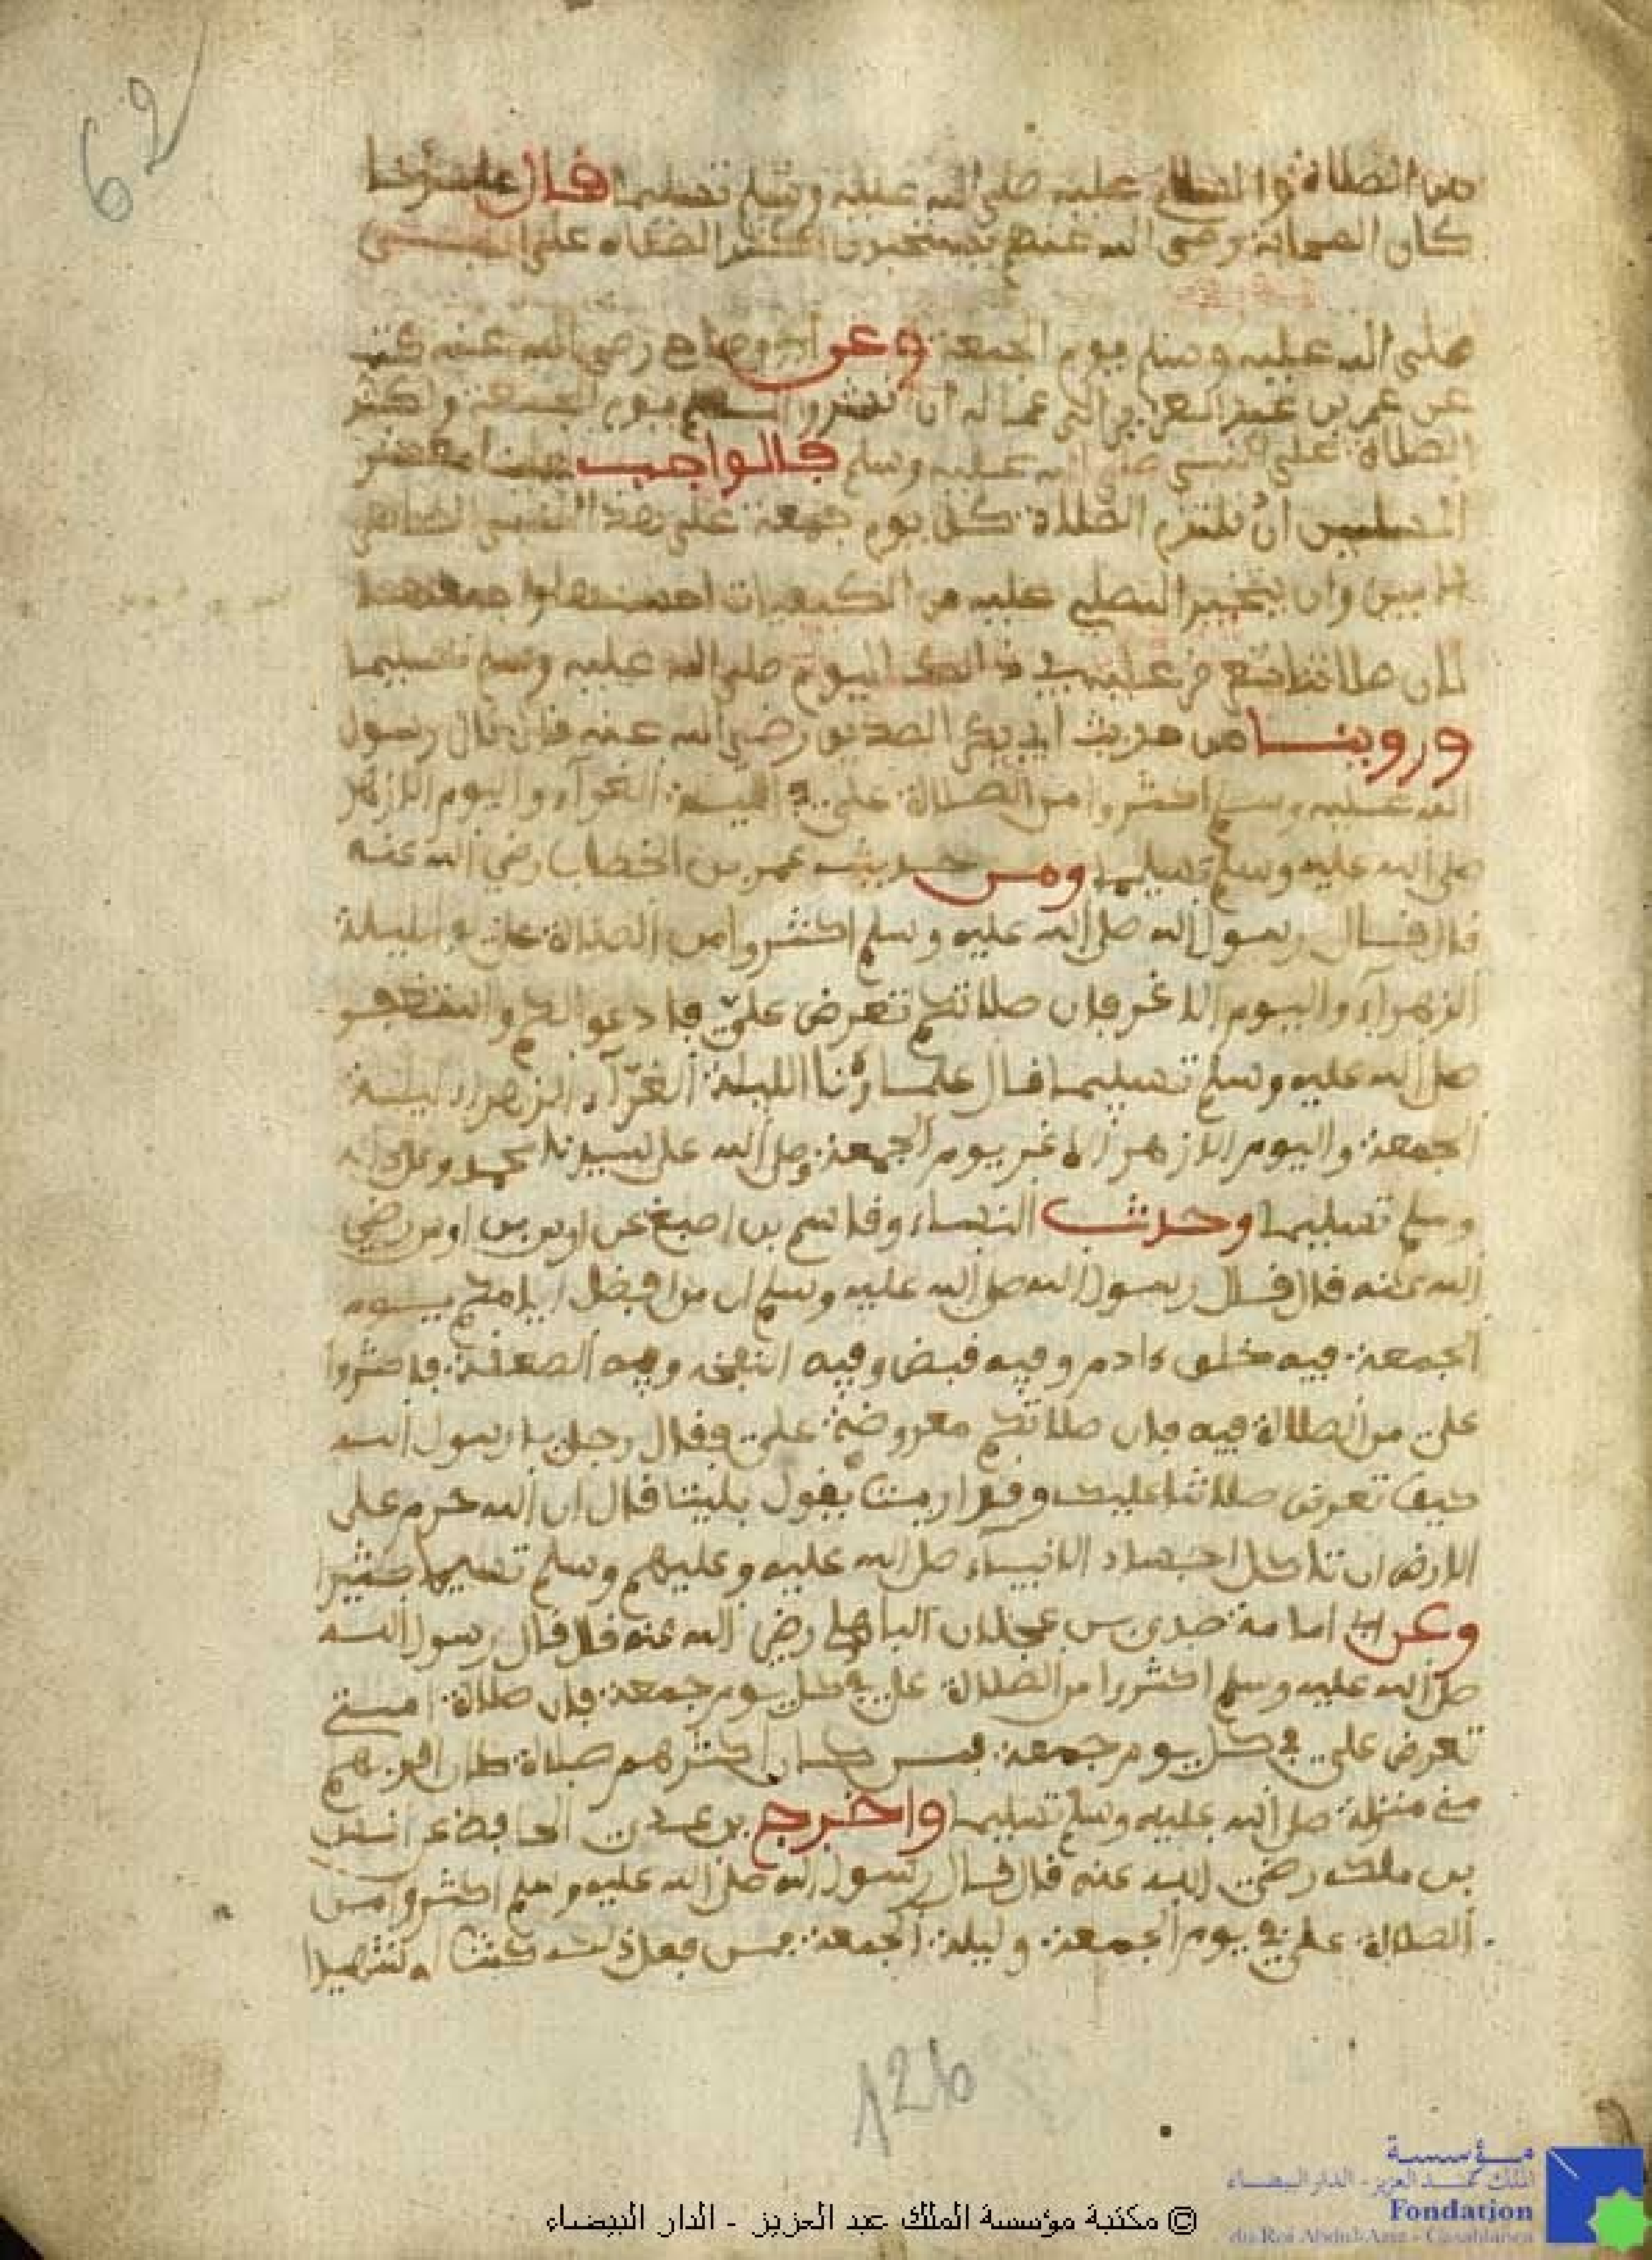 62
من الصلاة والسلام عليه صلى الله عليه وسلم تسليما قال علماؤنا
كان الصحابة رضي الله عنهم يستحبون اكثار الصلاة على النبي
صلى الله عليه وسلم يوم الجمعة وعن ابن وضاح رضي الله عنه كتب
عن عمر بن عبد العزيز الى عماله ان انشروا العلم يوم الجمعة واكثر
الصلاة على النبي صلى الله عليه وسلم فالواجب علينا معشر
المسلمين ان نلتزم الصلاة كل يوم جمعة على هذا النبي الطاهر
وان يتخير المصلي عليه من الكيفيات احسنها
لان صلاتنا تعرض عليه في ذالك اليوم صلى الله عليه وسلم تسليما
وروينا من حديث ابي بكر الصديق رضي الله عنه قال قال رسول
الله عليه وسلم اكثروا من الصلاة علي في الليلة الغرآء واليوم الازهر
صلى الله عليه وسلم تسليما ومن حديث عمر بن الخطاب رضي الله عنه
قال قال رسول الله صلى الله عليه وسلم اكثروا من الصلاة علي في الليلة
الزهرآء واليوم الاغر فان صلاتكم تعرض علي فادعوا لكم واستغفر
صلى الله عليه وسلم تسليما قال علماؤنا الليلة الغرآء الزهراء ليلة
الجمعة واليوم الازهر الاغر يوم الجمعة وصلى الله على سيدنا محمد وعلى اله
وسلم تسليما وحدث النساء وقاسم بن اصبغ عن اوس بن اوس رضي
الله عنه قال قال رسول الله صلى الله عليه وسلم ان من افضل ايامكم يوم
الجمعة فيه خلق ءادم وفيه قبض وفيه النفخة وفيه الصعقة فاكثروا
علي من الصلاة فيه فان صلاتكم معروضة علي فقال رجل يا رسول الله
كيف تعرض صلاتنا عليك وقد ارمت يقول بليت قال ان الله حرم على
الارض ان تاكل اجساد الانبيآء صلى الله عليه وعليهم وسلم تسليما كثيرا
وعن ابي امامة صدي بن عجلان الباهلي رضي الله عنه قال قال رسول الله
صلى الله عليه وسلم اكثروا من الصلاة علي في كل يوم جمعة فان صلاة امتي
تعرض علي في كل يوم جمعة فمن كان اكثرهم صلاة كان اقربهم
مني منزلة صلى الله عليه وسلم تسليما واخرج بن عدي الحافظ عن انس
بن ملك رضي الله عنه قال قال رسول الله صلى الله عليه وسلم اكثروا من
الصلاة علي في يوم الجمعة وليلة الجمعة فمن فعل ذلك كنت له شهيدا
126
مؤسسة
الملك عبد العزيز - الدار البيضاء
Fondation
du Roi Abdul-Aziz - Casablanca
© مكتبة مؤسسة الملك عبد العزيز - الدار البيضاء